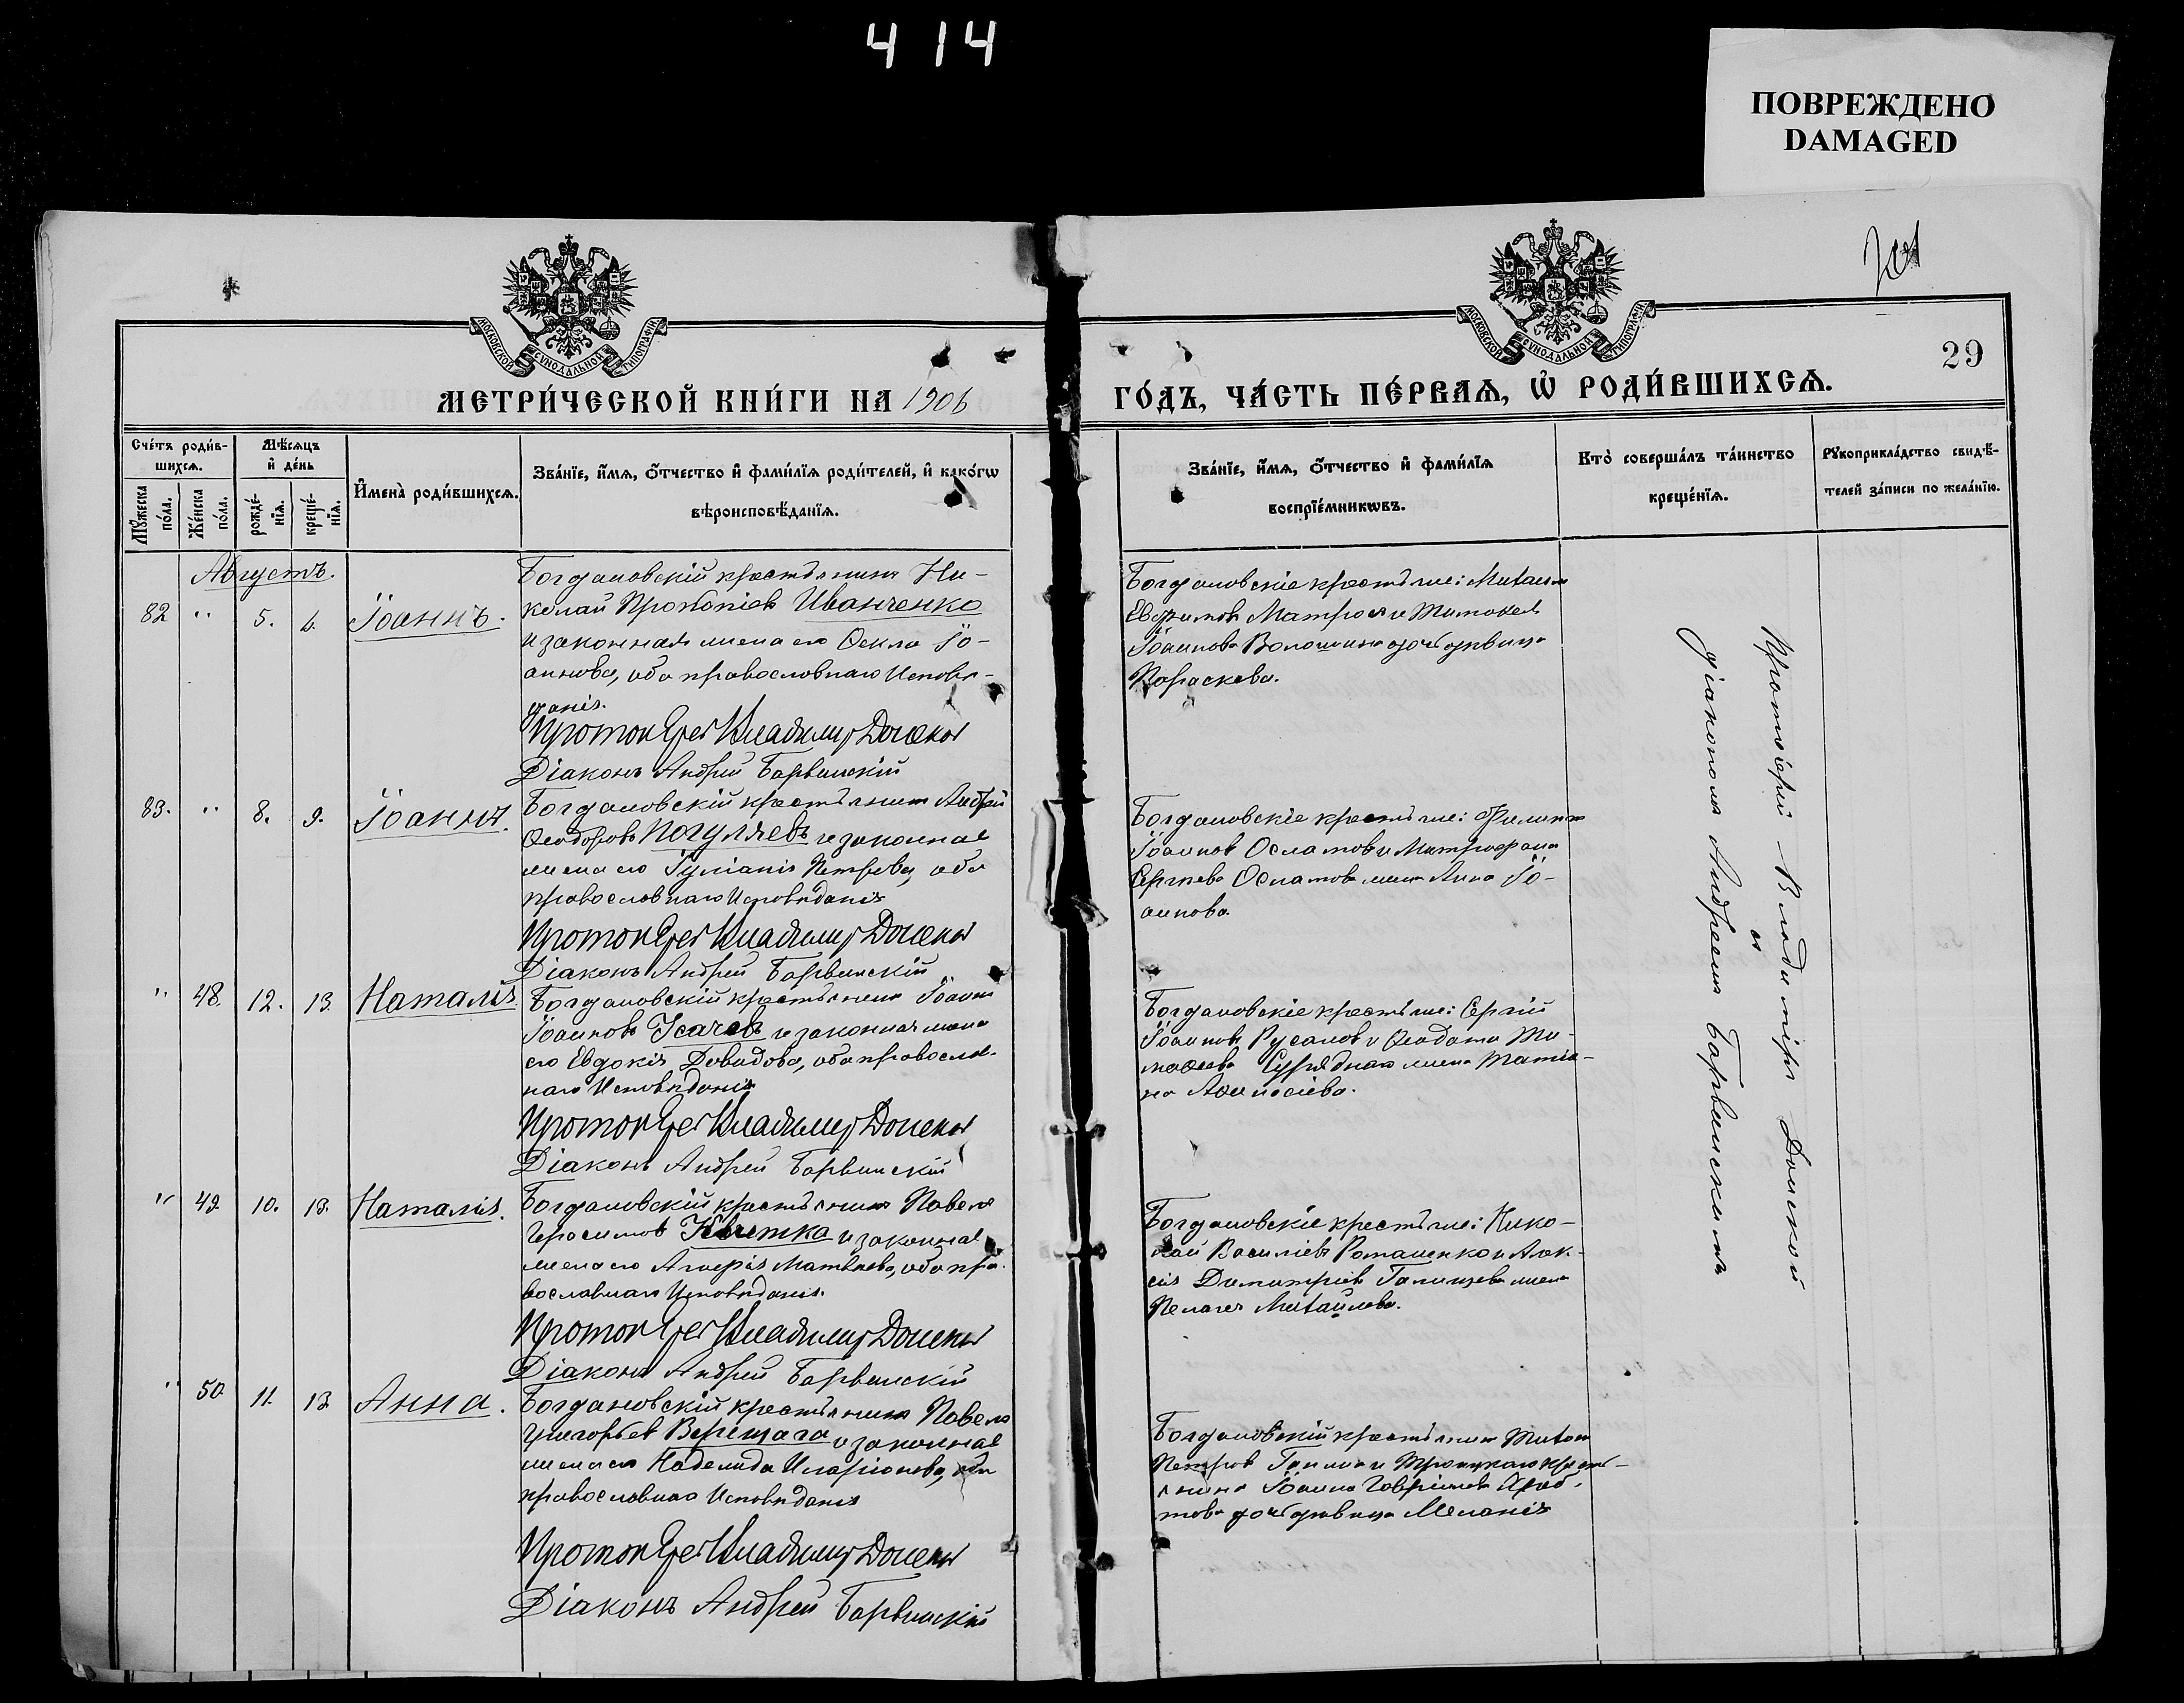 414
ПОВРЕЖДЕНО
DAMAGED
201
29
МОСКОВСКОЙ СѴНОДАЛЬНОЙ ТИПОГРАФІИ
МОСКОВСКОЙ СѴНОДАЛЬНОЙ ТИПОГРАФІИ
МЕТРИ́ЧЕСКОЙ КНИ́ГИ НА 1906
ГО́ДЪ, ЧА́СТЬ ПЕ́РВАѦ, Ѿ РОДИ́ВШИХСѦ.
Сче́тъ роди́в-
шихсѧ.
Мѣ́сѧцъ
и҆ де́нь
Мꙋ́жеска
по́ла.
Же́нска
по́ла.
рожде́-
нїѧ.
креще́-
нїѧ.
И҆мена̀ роди́вшихсѧ.
Зва́нїе, и҆́мѧ, ѻ҆́тчество и҆ фами́лїѧ роди́телей, и҆ како́гѡ
вѣроисповѣ́данїѧ.
Зва́нїе, и҆́мѧ, ѻ҆́тчество и҆ фами́лїѧ
воспрїе́мникѡвъ.
Кто̀ соверша́лъ та́инство
креще́нїѧ.
Рꙋкоприкла́дство свидѣ́-
телей за́писи по жела́нїю.
Августъ.
82 " 5. 6. Іоаннъ.
Богдановскій крестьянинъ Ни-
колай Прокопіевъ Иванченко
и законная жена его Ѳекла Іо-
аннова, оба православнаго Исповѣ-
данія.
Протоіерей Владимир Донской
Діаконъ Андрей Барвинскій
Богдановскіе крестьяне: Михаилъ
Евфимовъ Матрос и Тимофей
Іоаннова Волошина дочь девица
Параскева.
83. " 8. 9. Іоаннъ.
Богдановскій крестьянинъ Андрей
Ѳеодоровъ Погуляевъ и законная
жена его Іуліанія Петрова, оба
православнаго Исповѣданія
Протоіерей Владимир Донской
Діаконъ Андрей Барвинскій
Богдановскіе крестьяне: Филиппъ
Іоаннов и Митрофана
Сергеева жена Анна Іо-
аннова.
" 48. 12. 13. Наталія.
Богдановскій крестьянинъ Іоаннъ
Іоанновъ Усачевъ и законная жена
его Евдокія Давидова, оба православ-
наго Исповѣданія
Протоіерей Владимир Донской
Діаконъ Андрей Барвинскій
Богдановскіе крестьяне: Сергій
Іоанновъ Русанов и Ѳеодота Ти-
моѳеева жена Татіа-
на Аѳанасіева.
" 49. 10. 13. Наталія.
Богдановскій крестьянинъ Павелъ
Герасимов Квитка и законная
жена его Матвѣева, оба пра-
вославнаго Исповѣданія.
Протоіерей Владимир Донской
Діаконъ Андрей Барвинскій
Богдановскіе крестьяне: Нико-
лай Василіевъ Романенко и Алек-
сія Димитріев жена
Пелагея Михайлова.
" 50. 11. 13. Анна.
Богдановскій крестьянинъ Павелъ
Григорьев Верещага и законная
жена его Надежда Иларіонова, оба
православнаго Исповѣданія
Протоіерей Владимир Донской
Діаконъ Андрей Барвинскій
Богдановскій крестьянин Тихон
Петров и Троицкаго кресть-
янина Іоанна Гавриилова
дочь девица Меланія
Протоіерей Владиміръ Донской
съ
діакономъ Андреемъ Барвинскимъ